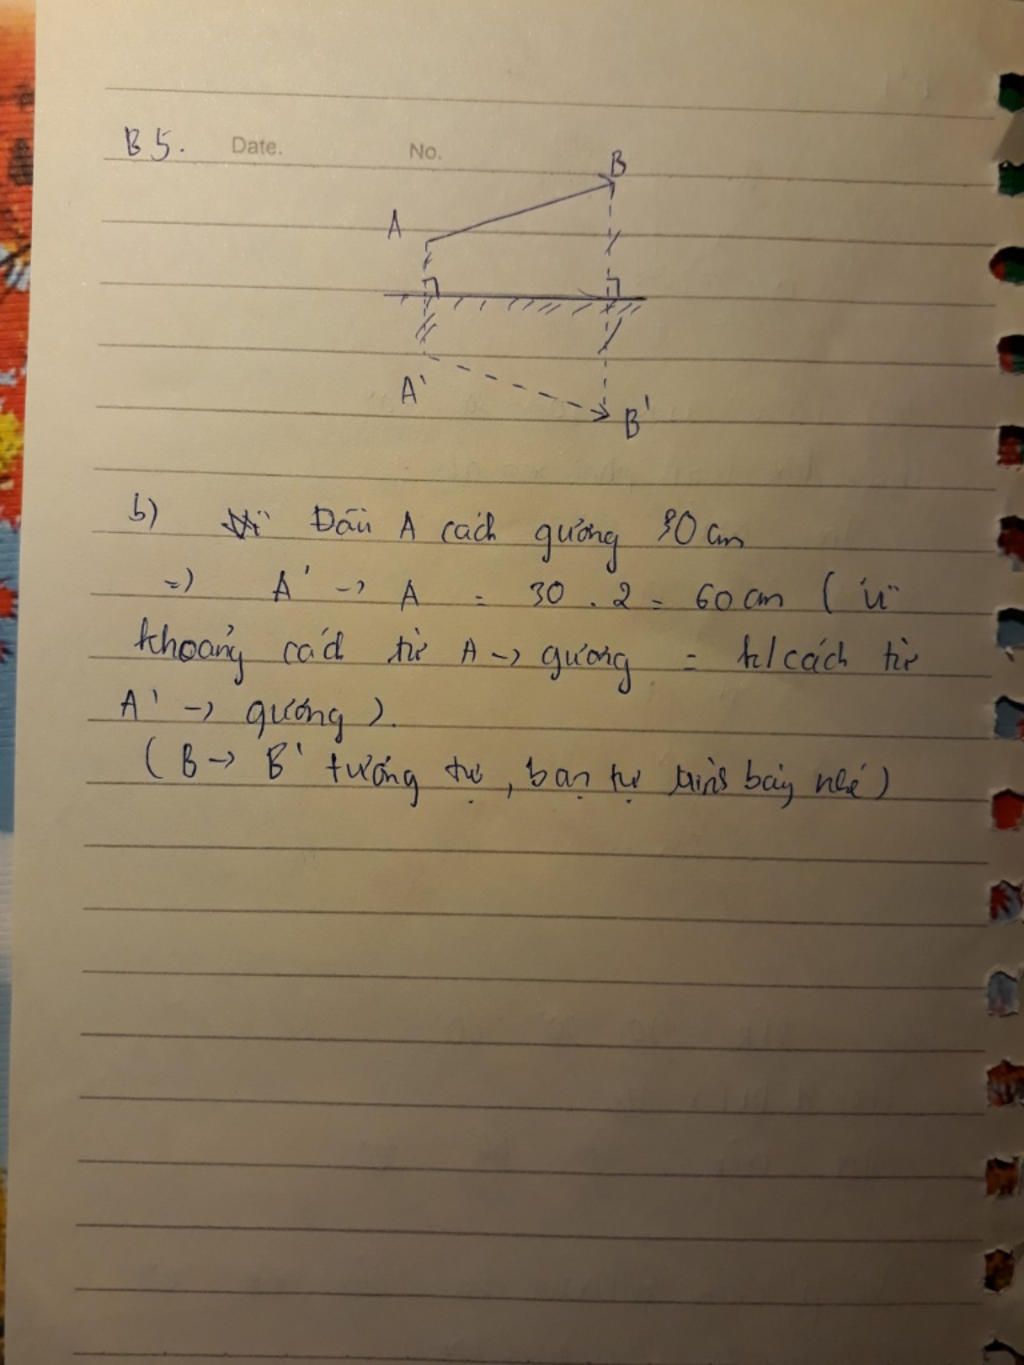 B5. Date. No.
B
A
A'
B'
b) Đầu A cách gương 30 cm
=) A' -> A = 30 . 2 = 60 cm ( vì
khoảng cách từ A -> gương = k/cách từ
A' -> gương ).
( B -> B' tương tự , bạn tự trình bày nhé )